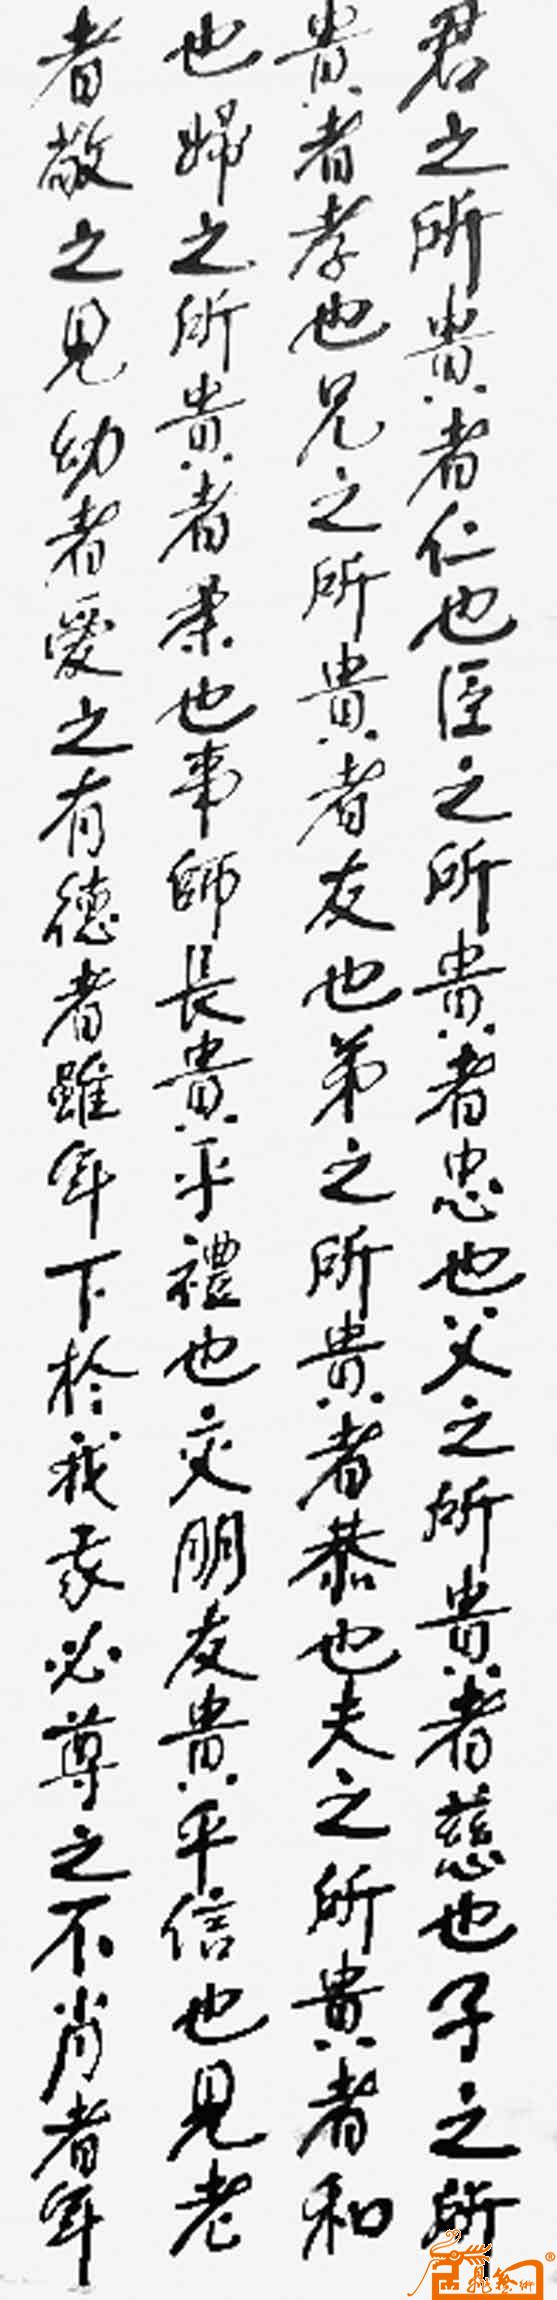 君之所貴者仁也臣之所貴者忠也父之所貴者慈也子之所
貴者孝也兄之所貴者友也弟之所貴者恭也夫之所貴者和
也婦之所貴者柔也事師長貴乎禮也交朋友貴乎信也見老
者敬之見幼者愛之有德者雖年下於我我必尊之不肖者年